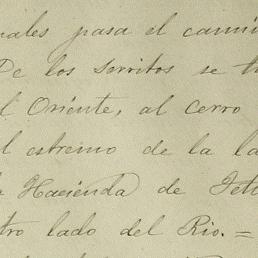 nales pasa el cami
De los Serritos se t
l Oriente, al cerro
l estremo de la la
a Hacienda de Tet
tro lado del Rio. =